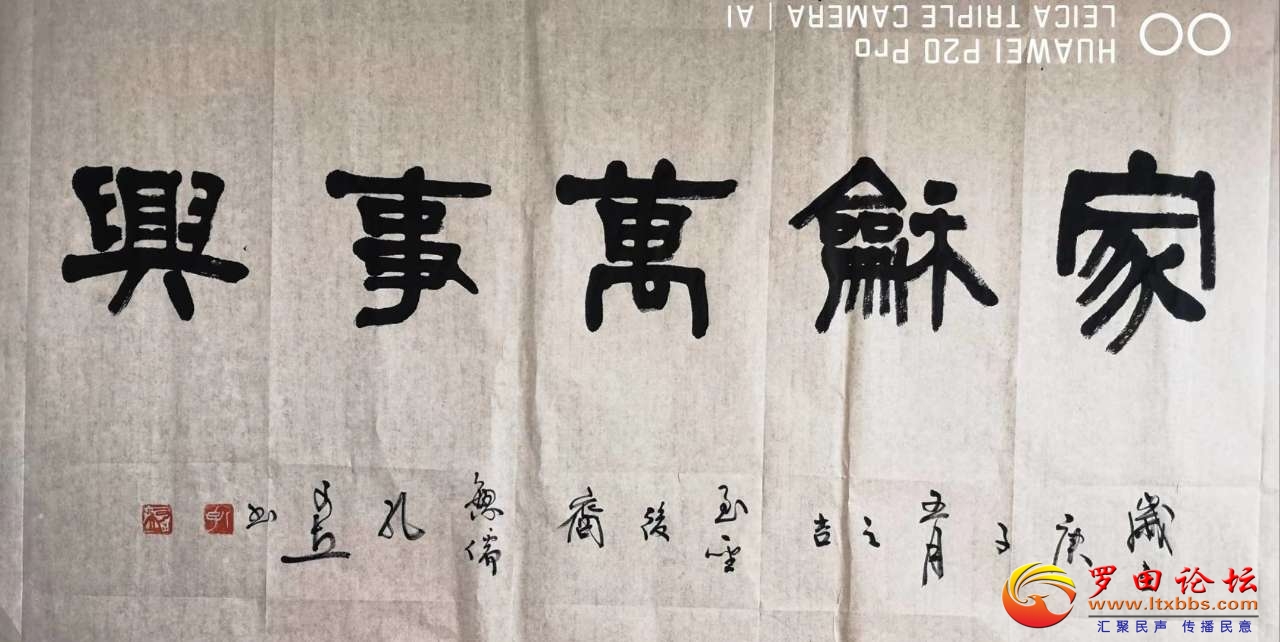 家龢萬事興
歲庚子五月之吉至聖後裔魯儒孔書
HUAWEI P20 Pro
LEICA TRIPLE CAMERA | AI
罗田论坛
www.ltxbbs.com
汇聚民声 传播民意